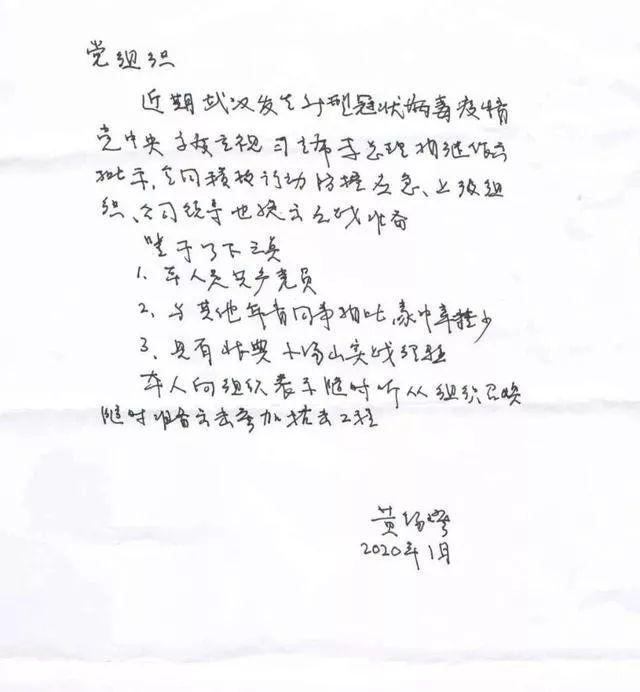 党组织
近期武汉发生新型冠状病毒疫情
党中央高度重视习主席李总理相继作出
批示,全国积极行动防控应急、上级组
织、公司领导也发出云战准备
鉴于以下三点
1. 本人是共产党员
2. 与其他年青同事相比,家中牵挂少
3. 具有北京小汤山实战经验
本人向组织表示随时听从组织召唤
随时准备出去参加抗击工程
黄
2020年1月